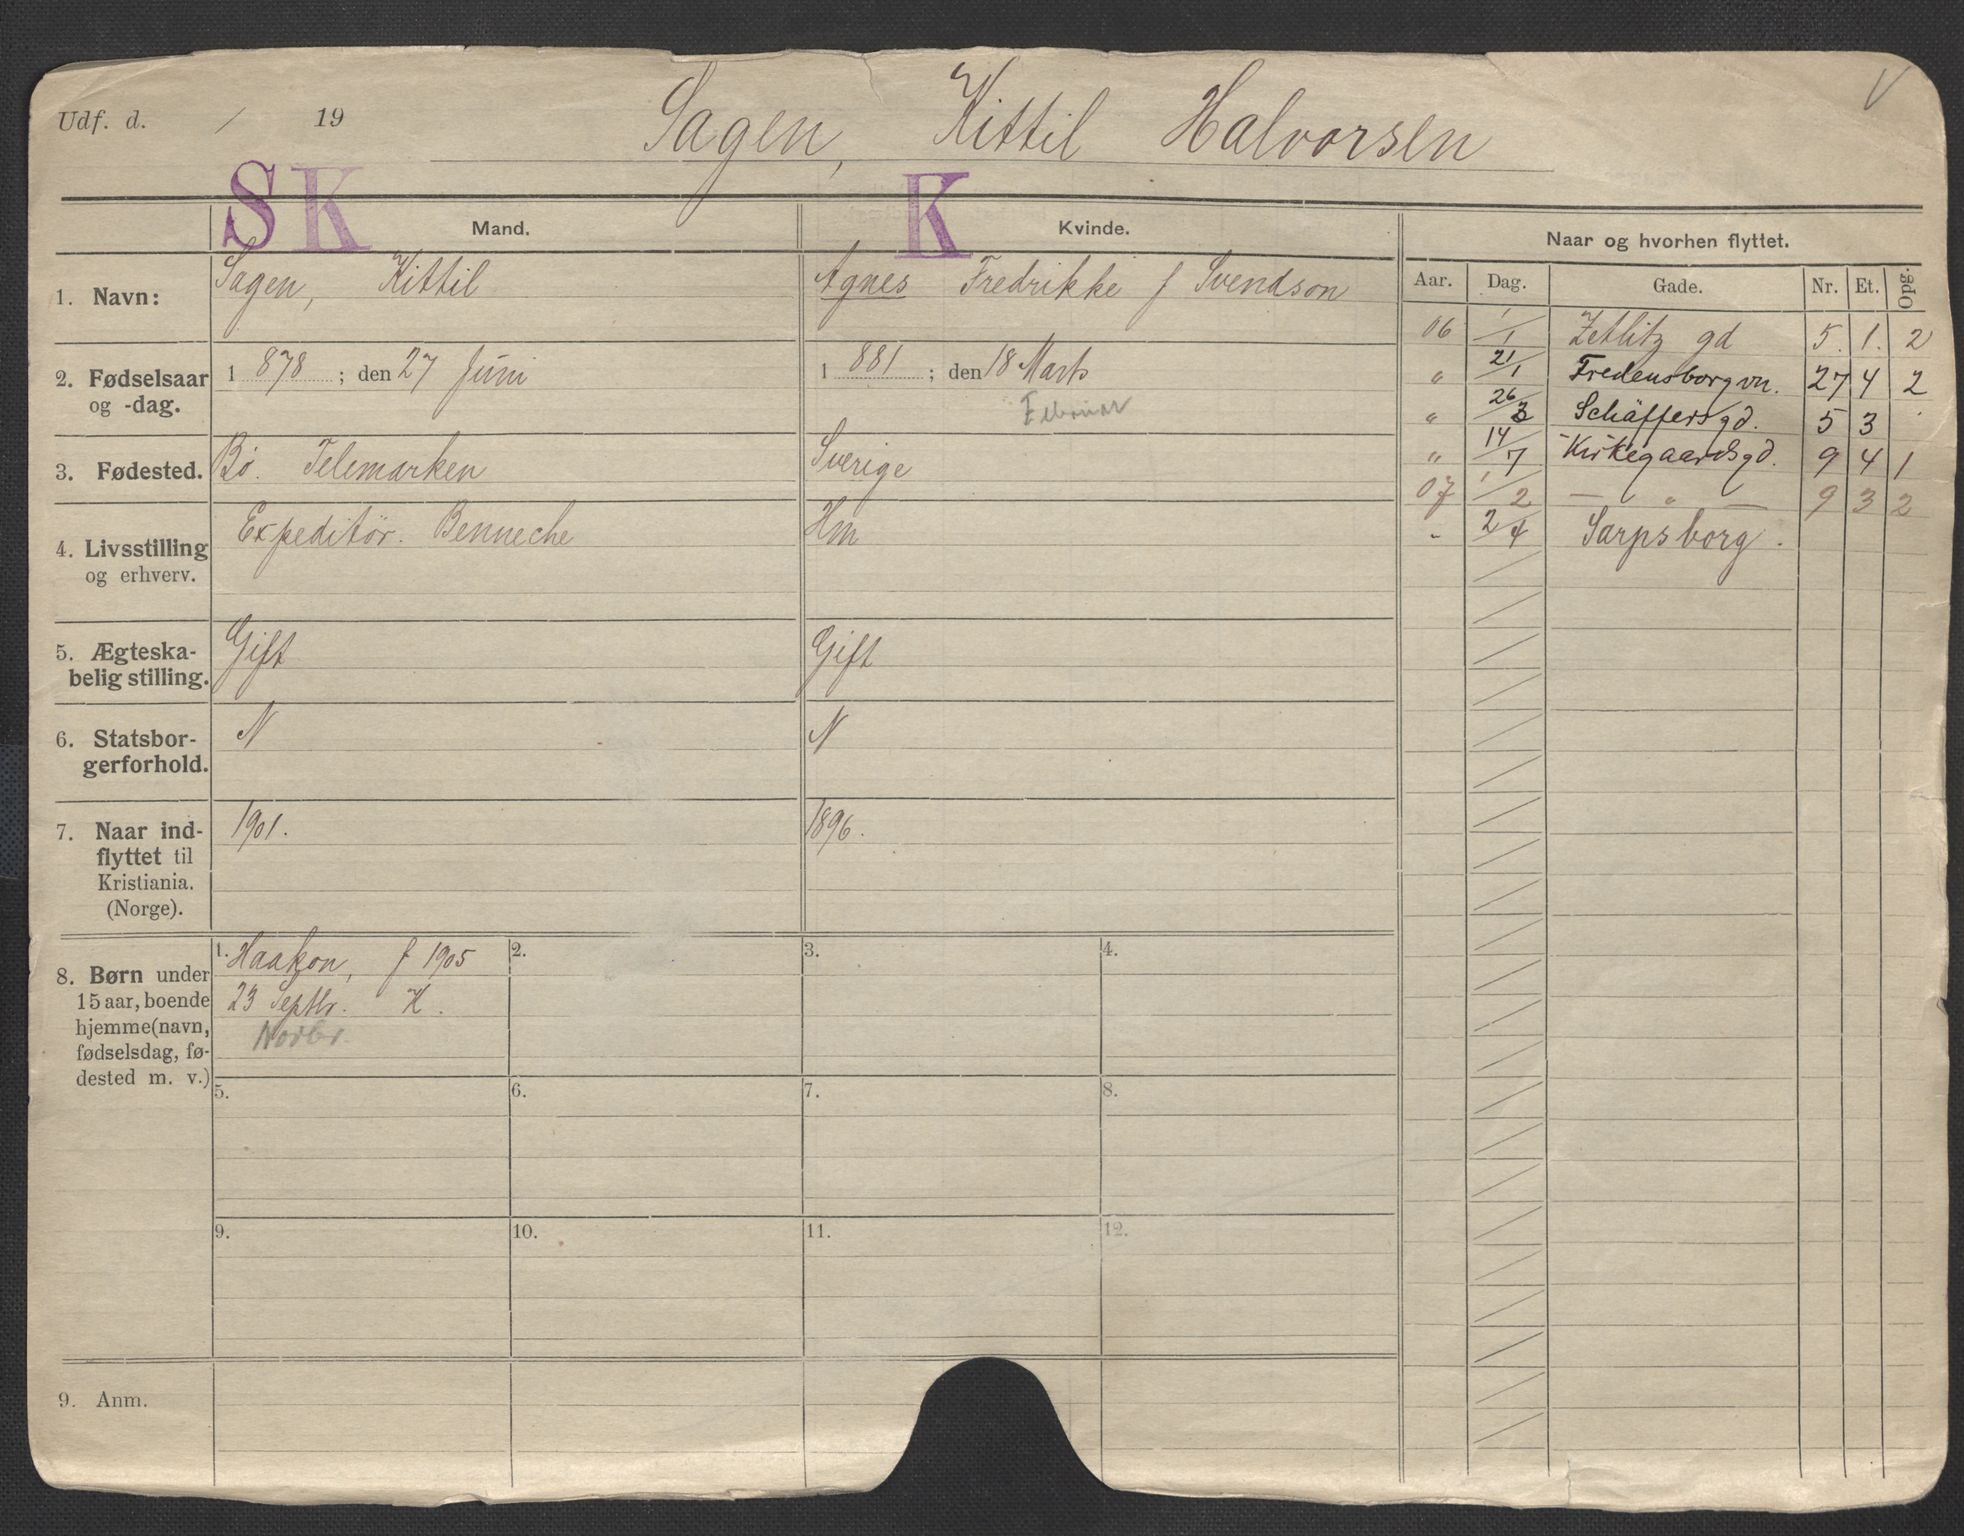 Udf. d. / 19 Sagen, Kittil Halvorsen
S K Mand. K Kvinde. Naar og hvorhen flyttet.
Aar. Dag. Gade. Nr. Et. Opg.
1. Navn: Sagen, Kittil Agnes Fredrikke f Svendson
2. Fødselsaar 1 878 ; den 27 Juni 1 881 ; den 18 Marts
og -dag. Februar
3. Fødested. Bø. Telemarken Sverige
4. Livsstilling Expeditør. Benneche Hm
og erhverv.
5. Ægteska- Gift Gift
belig stilling.
6. Statsbor- N N
gerforhold.
7. Naar ind- 1901. 1896.
flyttet til
Kristiania.
(Norge).
8. Børn under
15 aar, boende
hjemme (navn,
fødselsdag, fø-
dested m. v.)
1. Haakon, f 1905
23 Septbr. K.
Novbr.
2.
3.
4.
5.
6.
7.
8.
9.
10.
11.
12.
9. Anm.
06 1/1 Zetlitz gd 5. 1. 2
" 21/1 Fredensborgvn. 27 4 2
" 26/3 Schäffersgd. 5 3
" 14/7 Kirkegaardsgd. 9 4 1
07 1/2 — " — 9 3 2
- 2/4 Sarpsborg.